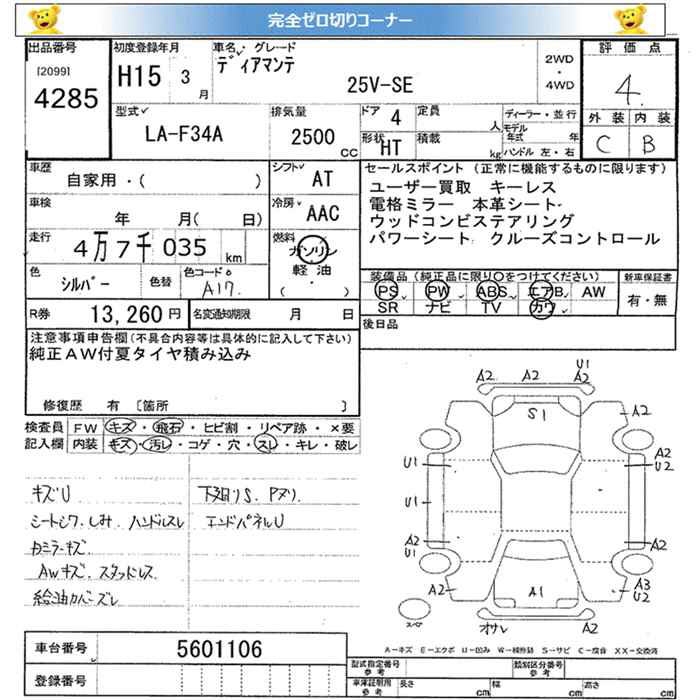 完全ゼロ切りコーナー
出品番号
[2099]
4285
初度登録年月
H15 3月
車名・グレード
ディアマンテ
25V-SE
2WD
・
4WD
評価点
4.
外装 内装
C B
型式
LA-F34A
排気量
2500 CC
ドア 4
定員 人
形状 HT
積載 kg
ディーラー・並行
モデル年式 年
ハンドル 左・右
車歴
自家用・( )
シフト AT
車検
年 月( 日)
冷房 AAC
走行
4万7千035 km
燃料
ガソリン
・
軽油
( )
色
シルバー
色替
色コード
A17
R券 13,260円
名変通知期限 月 日
セールスポイント(正常に機能するものに限ります)
ユーザー買取 キーレス
電格ミラー 本革シート
ウッドコンビステアリング
パワーシート クルーズコントロール
装備品(純正品に限り〇をつけてください)
PS PW ABS エアB AW
SR ナビ TV カワ
新車保証書
有・無
後日品
注意事項申告欄(不具合内容等は具体的に記入して下さい)
純正AW付夏タイヤ積み込み
修復歴 有 〔箇所 〕
検査員記入欄
FW キズ・飛石・ヒビ割・リペア跡・×要
内装 キズ・汚レ・コゲ・穴・スレ・キレ・破レ
キズU
シートシワ.しみ.ハンドルスレ
カミラーキズ
AWキズ.スタッドレス
給油カバーズレ
下回りS.Pヌリ
エンドパネルU
U1
A2 A2 A2
S1
A2
U1
A2
U2
U1
A2
U1
A2
A2
A1
A3
U2
スペア
オサレ
A2
A-キズ E-エクボ U-凹み W-補修跡 S-サビ C-腐食 XX-交換済
車台番号 5601106
登録番号
型式指定番号
参考
類別区分番号
参考
車庫証明用
参考
長さ cm
幅 cm
高さ cm